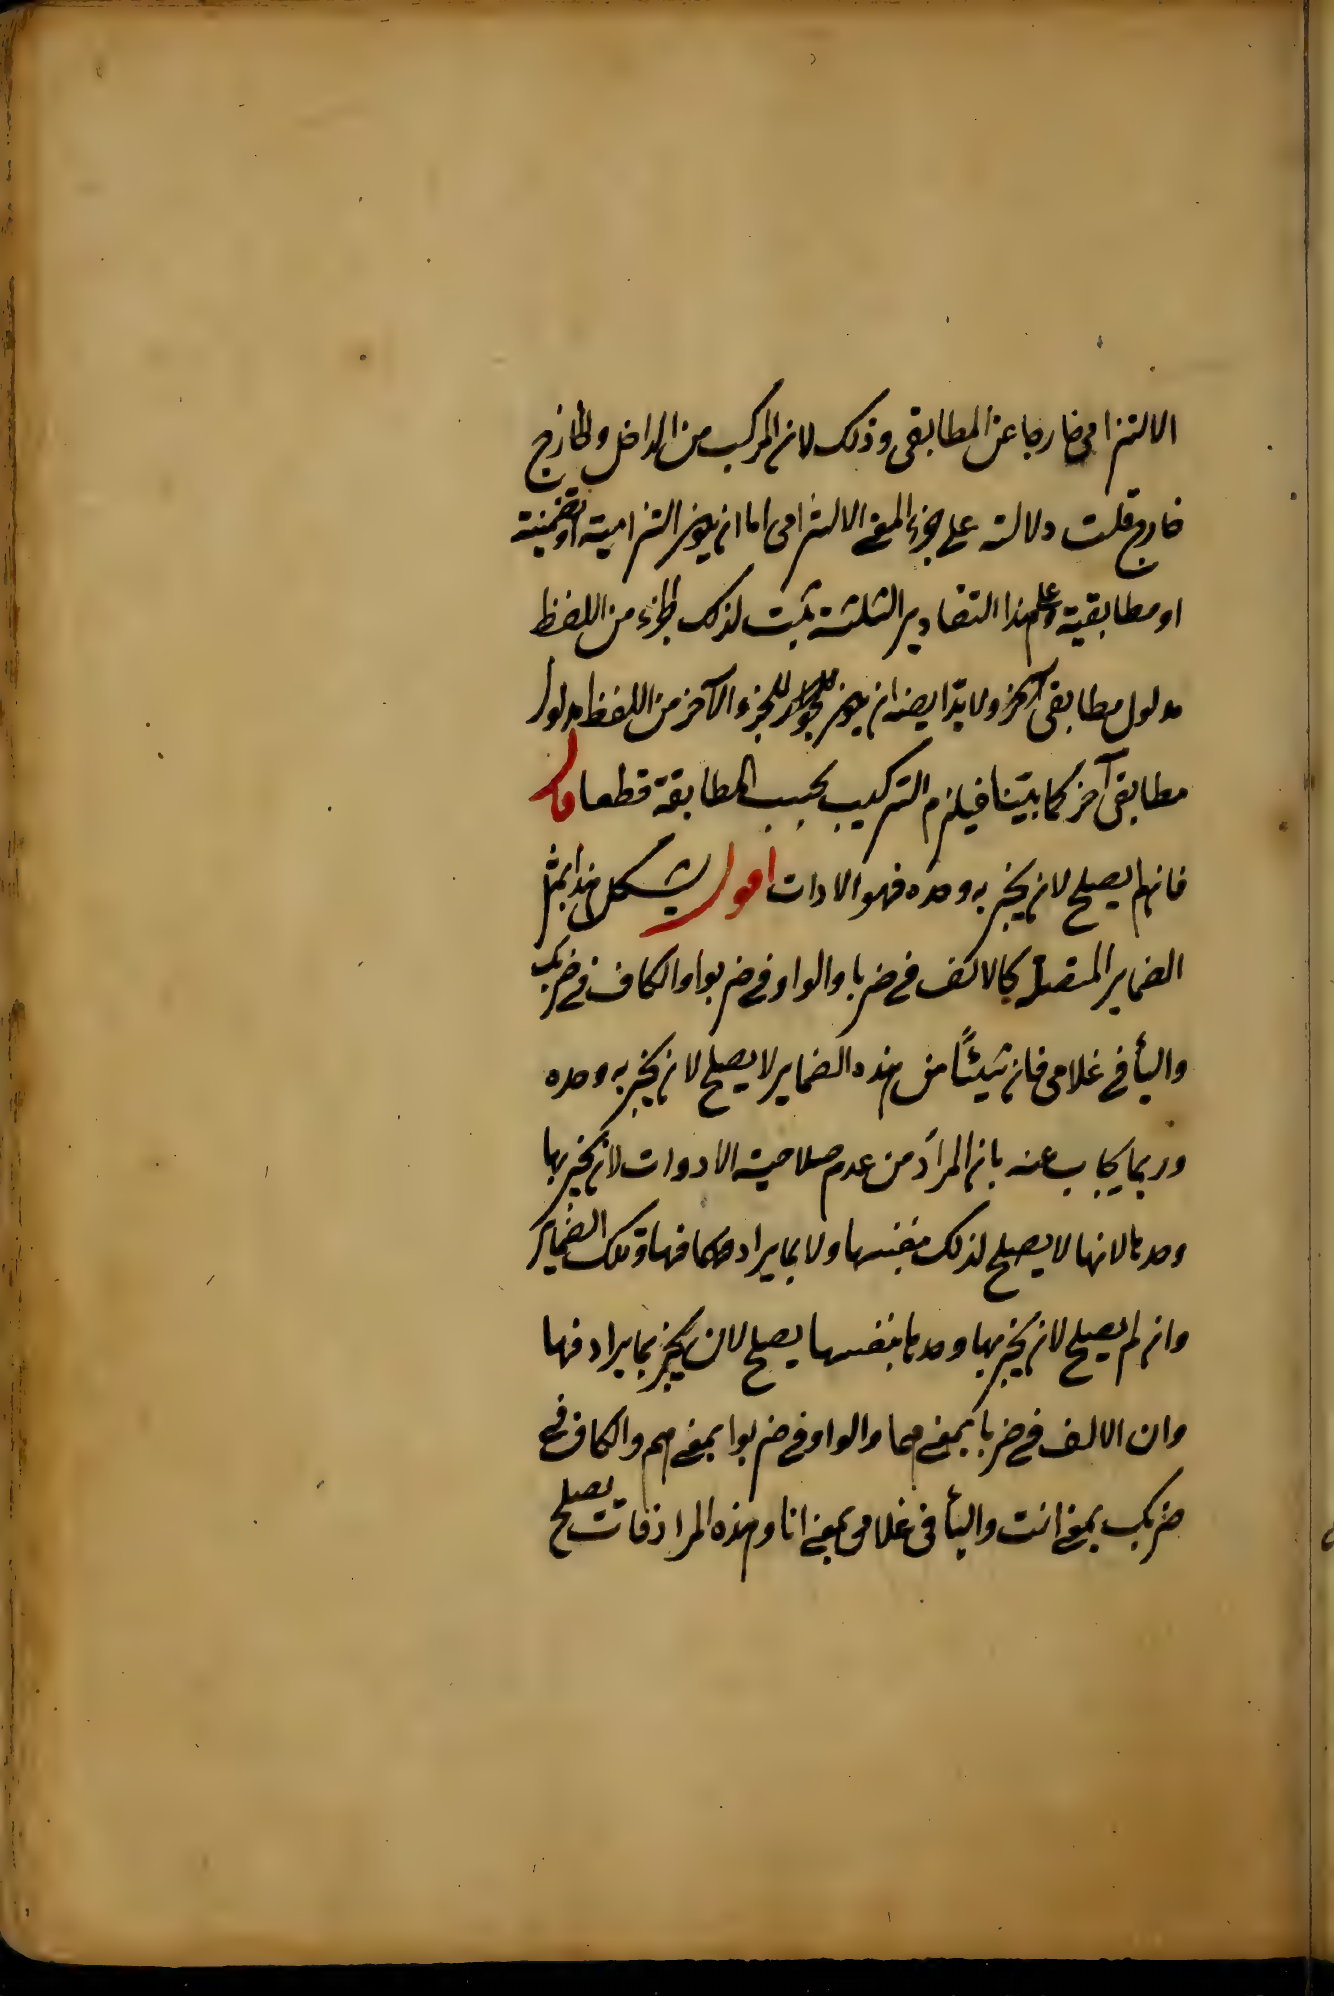 الالتزامى خارجا عن المطابقى وذلك لان المركب من الداخل والخارج
خارج قلت دلالته على جزء المعنى الالتزامى اما ان يكون التزامية او تضمنية
او مطابقية وعلى هذا التقادير الثلثة يثبت لذلك الجزء من اللفظ
مدلول مطابقى آخر ولا بد ايضا ان يكون للجزء الآخر من اللفظ مدلول
مطابقى آخر كما بيّنا فيلزم التركيب بحسب المطابقة قطعا قال
فان لم يصلح لان يخبر به وحده فهو الادات اقول يشكل هذا بمثل
الضماير المتصلة كالالف فى ضربا والواو فى ضربوا والكاف فى ضربك
والياء فى غلامى فان شيئًا من هذه الضماير لا يصلح لان يخبر به وحده
وربما يجاب عنه بان المراد من عدم صلاحية الادوات لان يخبر بها
وحدها انها لا يصلح لذلك بنفسها ولا بما يرادفها وتلك الضماير
وان لم يصلح لان يخبر بها وحدها بنفسها يصلح لان يخبر بما يرادفها
وان الالف فى ضربا بمعنى هما والواو فى ضربوا بمعنى هم والكاف فى
ضربك بمعنى انت والياء فى غلامى بمعنى انا وهذه المرادفات يصلح